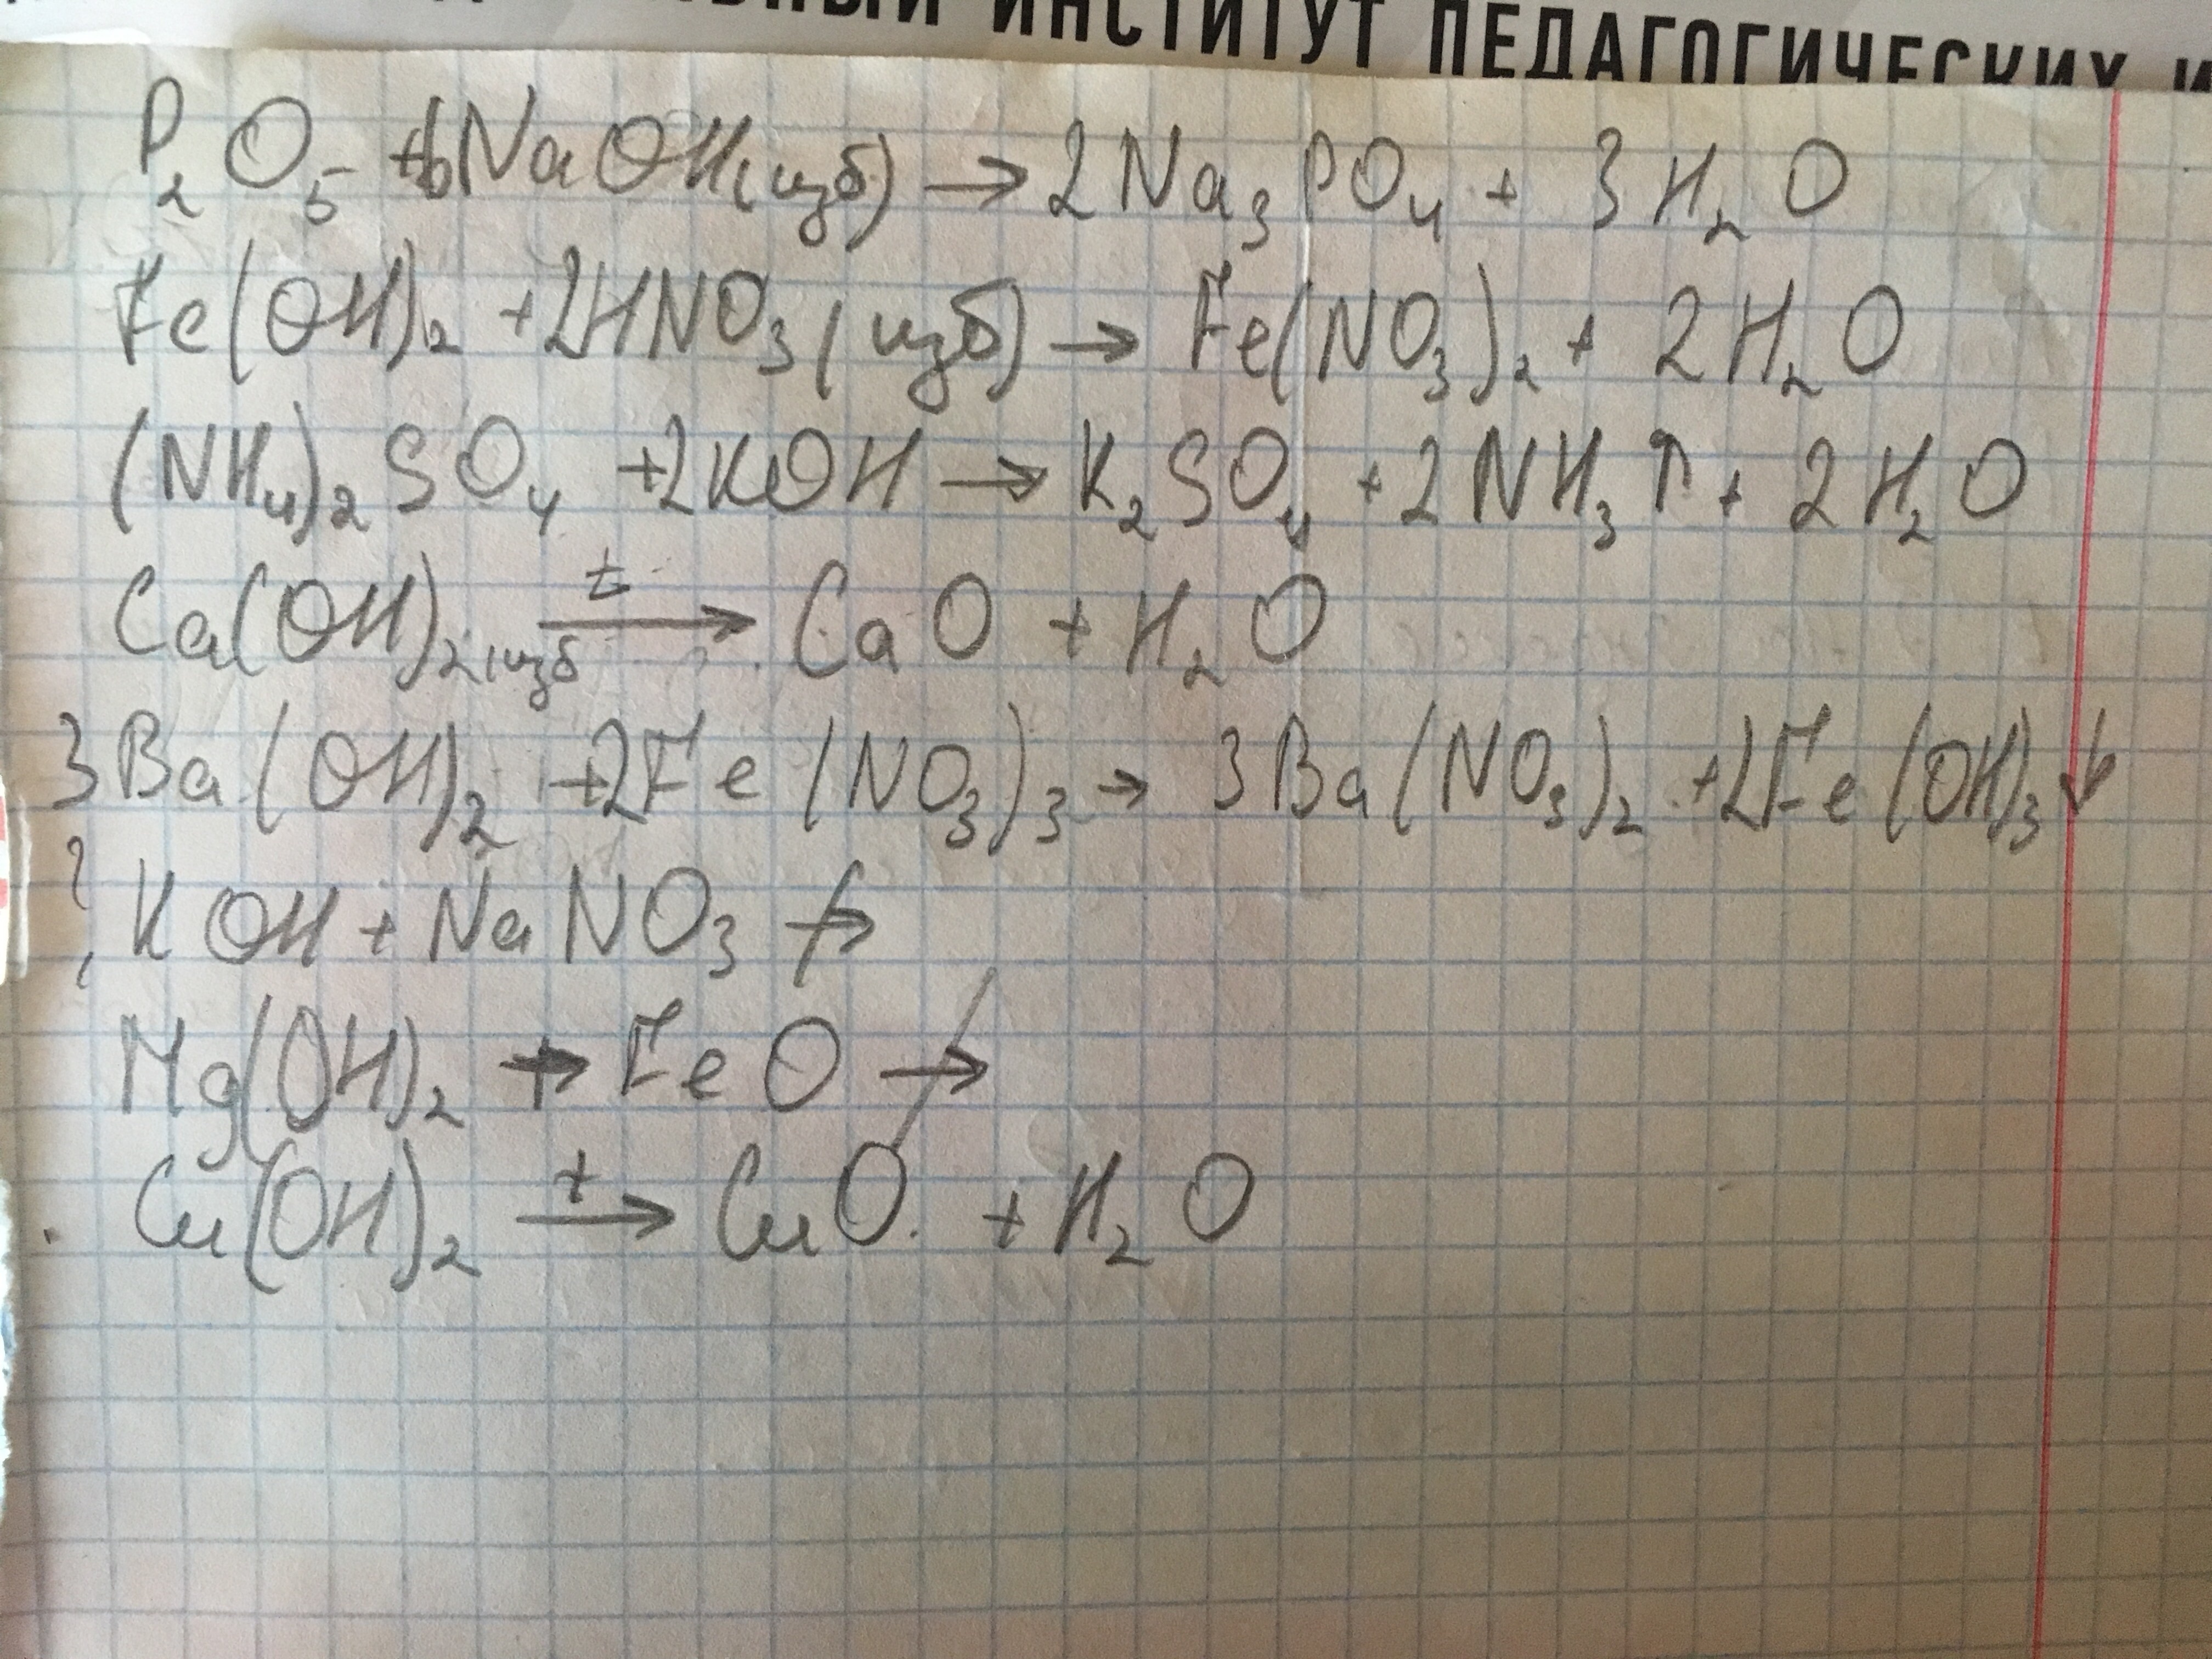 ЬНЫЙ ИНСТИТУТ ПЕДАГОГИЧЕСКИХ И
P₂O₅ + 6NaOH(изб) → 2Na₃PO₄ + 3H₂O
Fe(OH)₂ + 2HNO₃(изб) → Fe(NO₃)₂ + 2H₂O
(NH₄)₂SO₄ + 2KOH → K₂SO₄ + 2NH₃↑ + 2H₂O
Ca(OH)₂(изб t→ CaO + H₂O
3Ba(OH)₂ + 2Fe(NO₃)₃ → 3Ba(NO₃)₂ + 2Fe(OH)₃↓
? KOH + NaNO₃ ↛
Mg(OH)₂ + FeO ↛
Cu(OH)₂ t→ CuO + H₂O